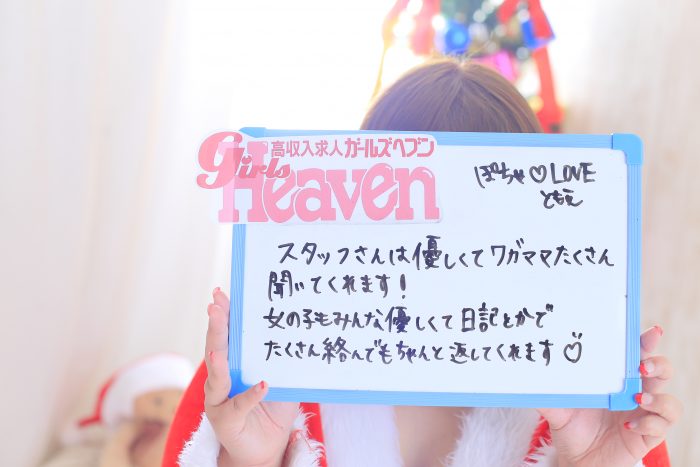 高収入求人ガールズヘブン
girls
Heaven
ぽちゃ♡LOVE
ともえ
スタッフさんは優しくてワガママたくさん
聞いてくれます!
女の子もみんな優しくて日記とかで
たくさん絡んでもちゃんと返してくれます♡